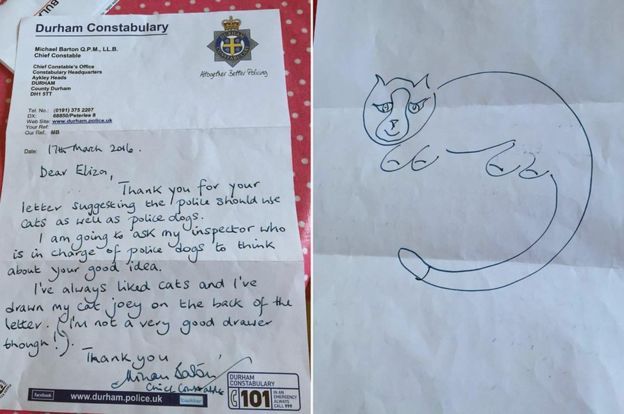 Durham Constabulary
Michael Barton Q.P.M., LL.B.
Chief Constable
Altogether Better Policing
Chief Constable's Office
Constabulary Headquarters
Aykley Heads
DURHAM
County Durham
DH1 5TT
Tel. No.: (0191) 375 2207
DX: 68850/Peterlee 8
Web Site: www.durham.police.uk
Your Ref:
Our Ref: MB
Date: 17th March 2016.
Dear Eliza,
Thank you for your
letter suggesting the police should use
cats as well as police dogs.
I am going to ask my inspector who
is in charge of police dogs to think
about your good idea.
I've always liked cats and I've
drawn my cat joey on the back of the
letter. (I'm not a very good drawer
though!).
Thank you
Chief Constable
facebook
www.durham.police.uk
DURHAM
CONSTABULARY
101
IN AN
EMERGENCY
ALWAYS
CALL 999